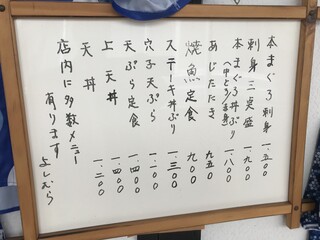 本まぐろ刺身 一.五〇〇
刺身三点盛 一.九〇〇
本まぐろ丼ぶり 一.八〇〇
あじたたき 九五〇
焼魚定食 九〇〇
ステーキ丼ぶり 一.三〇〇
穴子天ぷら 一.一〇〇
天ぷら定食 一.四〇〇
上天丼 一.四〇〇
天丼 一.二〇〇
店内に多数メニュー
有ります
よしむら